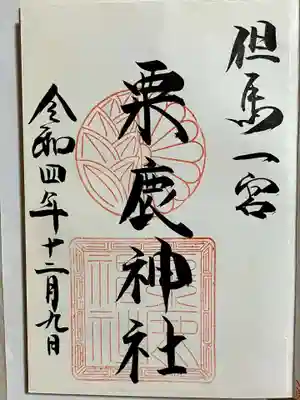 但馬一宮
粟鹿神社
令和四年十二月九日